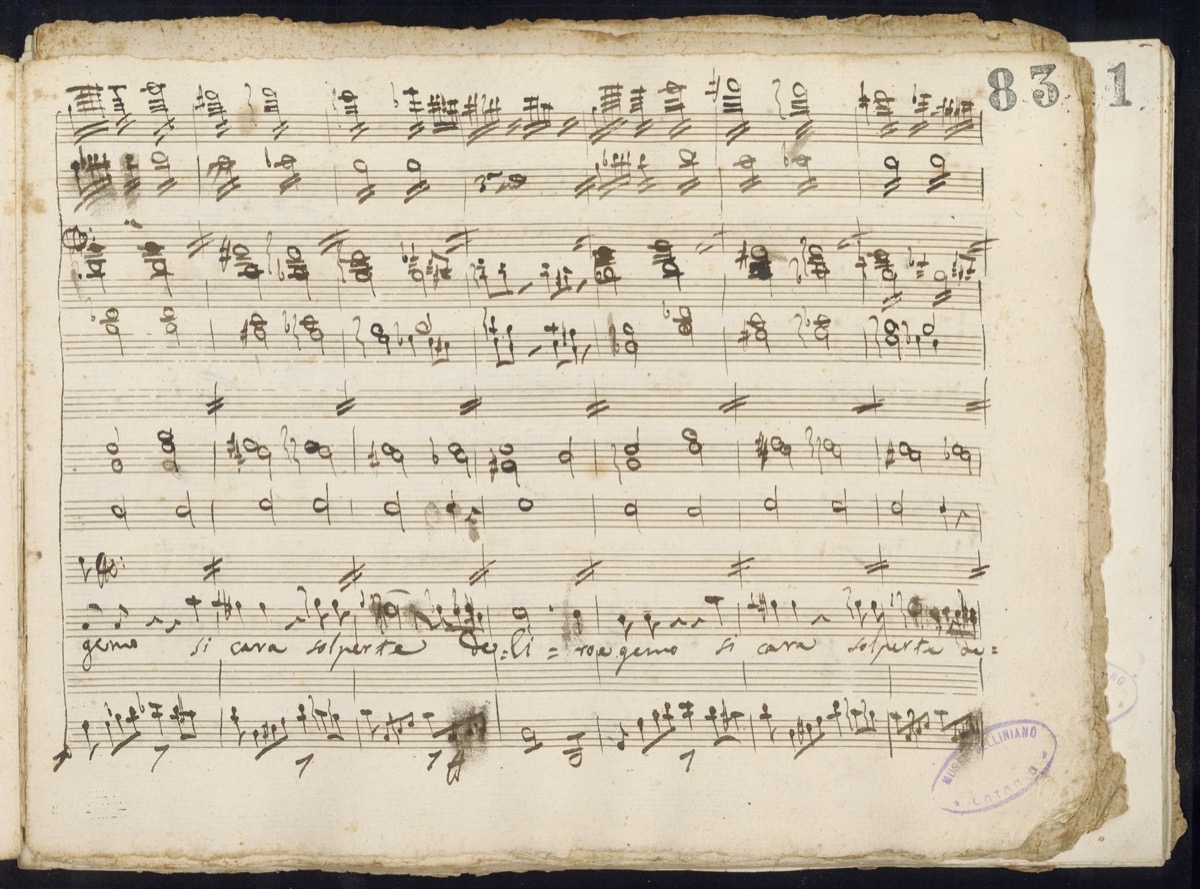 83 1
gemo si cara sol per te de=li=ro e gemo si cara sol per te de=
MUSEO BELLINIANO
CATANIA